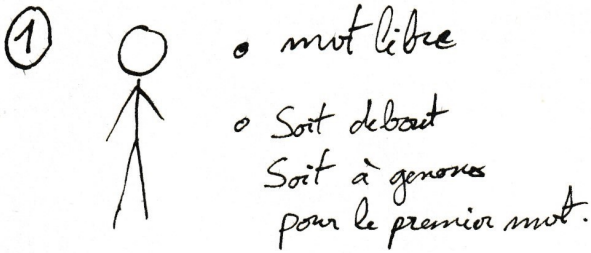 1
• mot libre
• Soit debout
Soit à genoux
pour le premier mot.